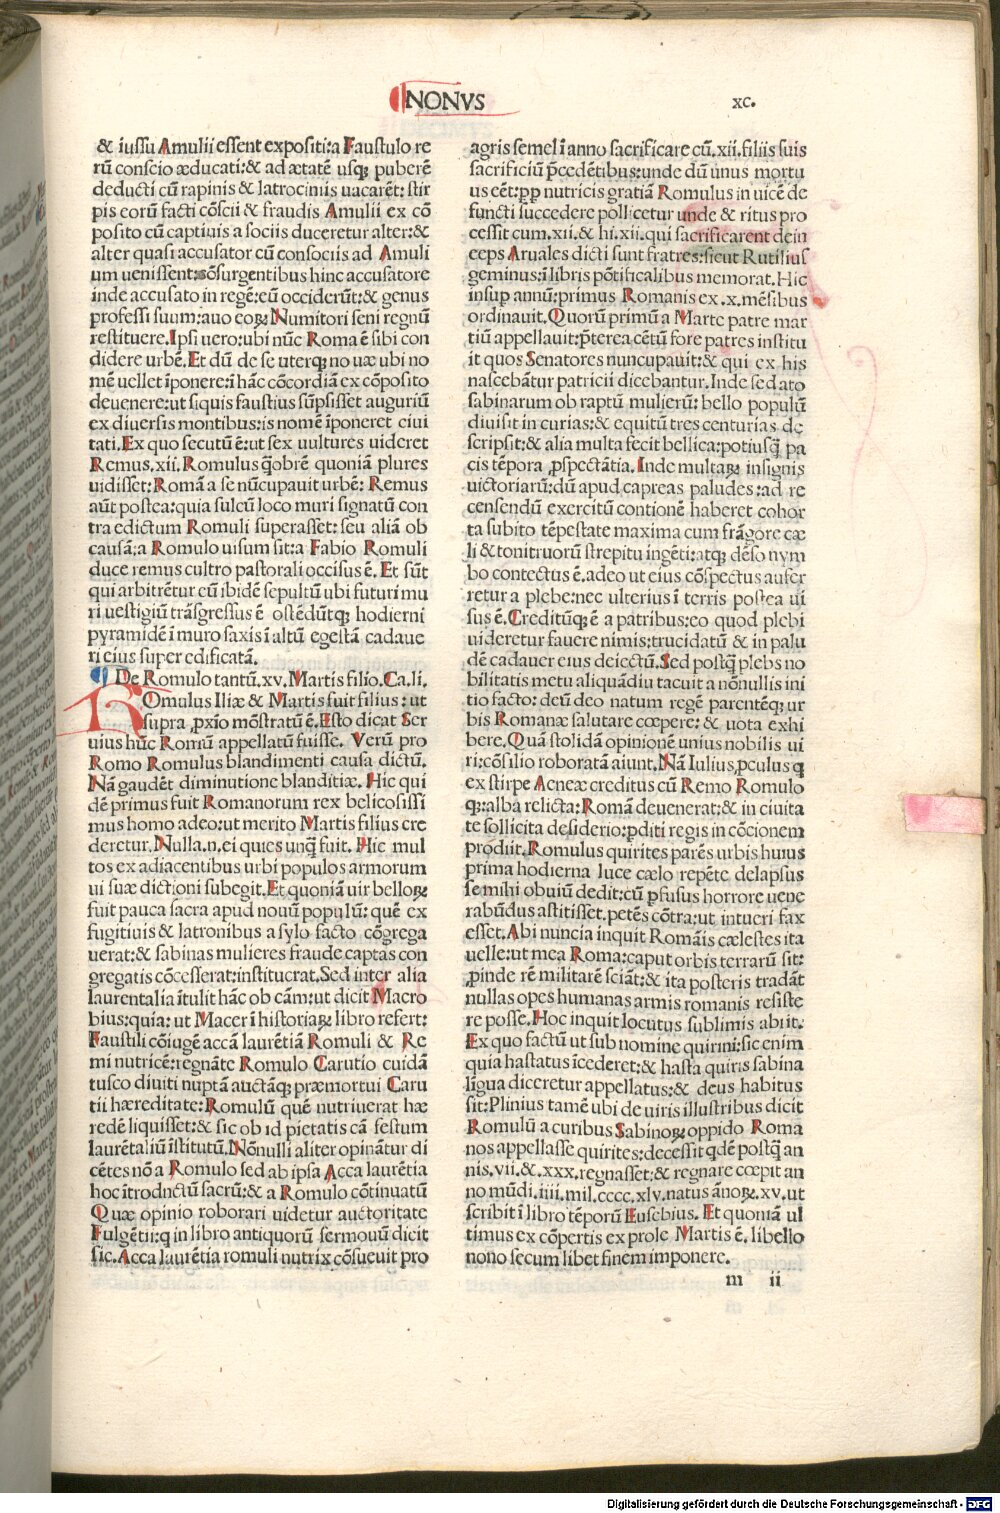 NONVS
xc.
& iussu Amulii essent expositi:a Faustulo re
rū conscio æducati:& ad ætatē usq; puberē
deducti cū rapinis & latrociniis uacarēt: stir
pis eorū facti cōscii & fraudis Amulii ex cō
posito cū captiuis a sociis duceretur alter:&
alter quasi accusator cū consociis ad Amuli
um uenissent:cōsurgentibus hinc accusatore
inde accusato in regē:eū occiderūt:& genus
professi suum:auo eoꝝ Numitori seni regnū
restituere.Ipsi uero:ubi nūc Roma ē sibi con
didere urbē.Et dū de se uterq; nouæ ubi no
mē uellet īponere:ī hāc cōcordiā ex cōposito
deuenere:ut siquis faustius sūpsisset auguriū
ex diuersis montibus:is nomē īponeret ciui
tati.Ex quo secutū ē:ut sex uultures uideret
Remus.xii.Romulus q̄obrē quoniā plures
uidisset:Romā a se nūcupauit urbē: Remus
aūt postea:quia sulcū loco muri signatū con
tra edictum Romuli superasset: seu aliā ob
causā:a Romulo uisum sit:a Fabio Romuli
duce remus cultro pastorali occisus ē. Et sūt
qui arbitrētur eū ibidē sepultū ubi futuri mu
ri uestigiū trāsgressus ē ostēdūtq; hodierni
pyramidē ī muro saxis ī altū egestā cadaue
ri eius super edificatā.
De Romulo tantū.xv.Martis filio.Ca.li.
ROmulus Iliæ & Martis fuit filius: ut
supra ꝓxio mōstratū ē.Esto dicat Ser
uius hūc Romū appellatū fuisse. Verū pro
Romo Romulus blandimenti causa dictū.
Nā gaudēt diminutione blanditiæ. Hic qui
dē primus fuit Romanorum rex belicosissi
mus homo adeo:ut merito Martis filius cre
deretur.Nulla.n.ei quies unq̄ fuit. Hic mul
tos ex adiacentibus urbi populos armorum
ui suæ dictioni subegit.Et quoniā uir belloꝝ
fuit pauca sacra apud nouū populū: quē ex
fugitiuis & latronibus asylo facto cōgrega
uerat:& sabinas mulieres fraude captas con
gregatis cōcesserat:instituerat.Sed inter alia
laurentalia ītulit hāc ob cām:ut dicit Macro
bius:quia: ut Macer ī historiaꝝ libro refert:
Faustuli cōiugē accā laurētiā Romuli & Re
mi nutricē:regnāte Romulo Carutio cuidā
tusco diuiti nuptā auctāq; præmortui Caru
tii hæreditate:Romulū quē nutriuerat hæ
redē liquisset:& sic ob id pietatis cā festum
laurētaliū īstitutū.Nōnulli aliter opinātur di
cētes nō a Romulo sed ab ipsa Acca laurētia
hoc ītroductū sacrū:& a Romulo cōtinuatū
Quæ opinio roborari uidetur auctoritate
Fulgētii:q in libro antiquorū sermonū dicit
sic.Acca laurētia romuli nutrix cōsueuit pro
agris semel ī anno sacrificare cū.xii.filiis suis
sacrificiū p̄cedētibus:unde dū unus mortu
us eēt:ꝓp nutricis gratiā Romulus in uicē de
functi succedere pollicetur unde & ritus pro
cessit cum.xii.& hi.xii.qui sacrificarent dein
ceps Aruales dicti sunt fratres:sicut Rutilius
geminus:ī libris pōtificalibus memorat.Hic
insup annū:primus Romanis ex.x.mēsibus
ordinauit.Quorū primū a Marte patre mar
tiū appellauit:p̄terea cētū fore patres institu
it quos Senatores nuncupauit:& qui ex his
nascebātur patricii dicebantur.Inde sedato
sabinarum ob raptū mulierū: bello populū
diuisit in curias:& equitū tres centurias de
scripsit:& alia multa fecit bellica:potiusq̄ pa
cis tēpora ꝓspectātia.Inde multaꝝ insignis
uictoriarū:dū apud capreas paludes:ad re
censendū exercitū contionē haberet cohor
ta subito tēpestate maxima cum frāgore cæ
li & tonitruorū strepitu ingēti:atq; dēso nym
bo contectus ē.adeo ut eius cōspectus aufer
retur a plebe:nec ulterius ī terris postea ui
sus ē.Creditūq; ē a patribus:eo quod plebi
uideretur fauere nimis:trucidatū & in palu
dē cadauer eius deiectū.Sed postq̄ plebs no
bilitatis metu aliquādiu tacuit a nōnullis ini
tio facto: deū deo natum regē parentēq; ur
bis Romanæ salutare cœpere: & uota exhi
bere.Quā stolidā opinionē unius nobilis ui
ri:cōsilio roboratā aiunt.Nā Iulius ꝓculus q
ex stirpe Aeneæ creditus cū Remo Romulo
q;:alba relicta: Romā deuenerat:& in ciuita
te sollicita desiderio:pditi regis in cōcionem
prodiit.Romulus quirites parēs urbis huius
prima hodierna luce cælo repēte delapsus
se mihi obuiū dedit:cū pfusus horrore uene
rabūdus astitisset.petēs cōtra:ut intueri fax
esset.Abi nuncia inquit Romāis cælestes ita
uelle:ut mea Roma:caput orbis terrarū sit:
ꝓinde rē militarē sciāt:& ita posteris tradāt
nullas opes humanas armis romanis resiste
re posse.Hoc inquit locutus sublimis abiit.
Ex quo factū ut sub nomine quirini:sic enim
quia hastatus īcederet:& hasta quiris sabina
līgua diceretur appellatus:& deus habitus
sit:Plinius tamē ubi de uiris illustribus dicit
Romulū a curibus Sabinoꝝ oppido Roma
nos appellasse quirites:decessit qdē postq̄ an
nis.vii.&.xxx.regnasset:& regnare cœpit an
no mūdi.iiii.mil.cccc.xlv.natus ānoꝝ.xv.ut
scribit ī libro tēporū Eusebius. Et quoniā ul
timus ex cōpertis ex prole Martis ē. libello
nono secum libet finem imponere.
m ii
Digitalisierung gefördert durch die Deutsche Forschungsgemeinschaft - DFG